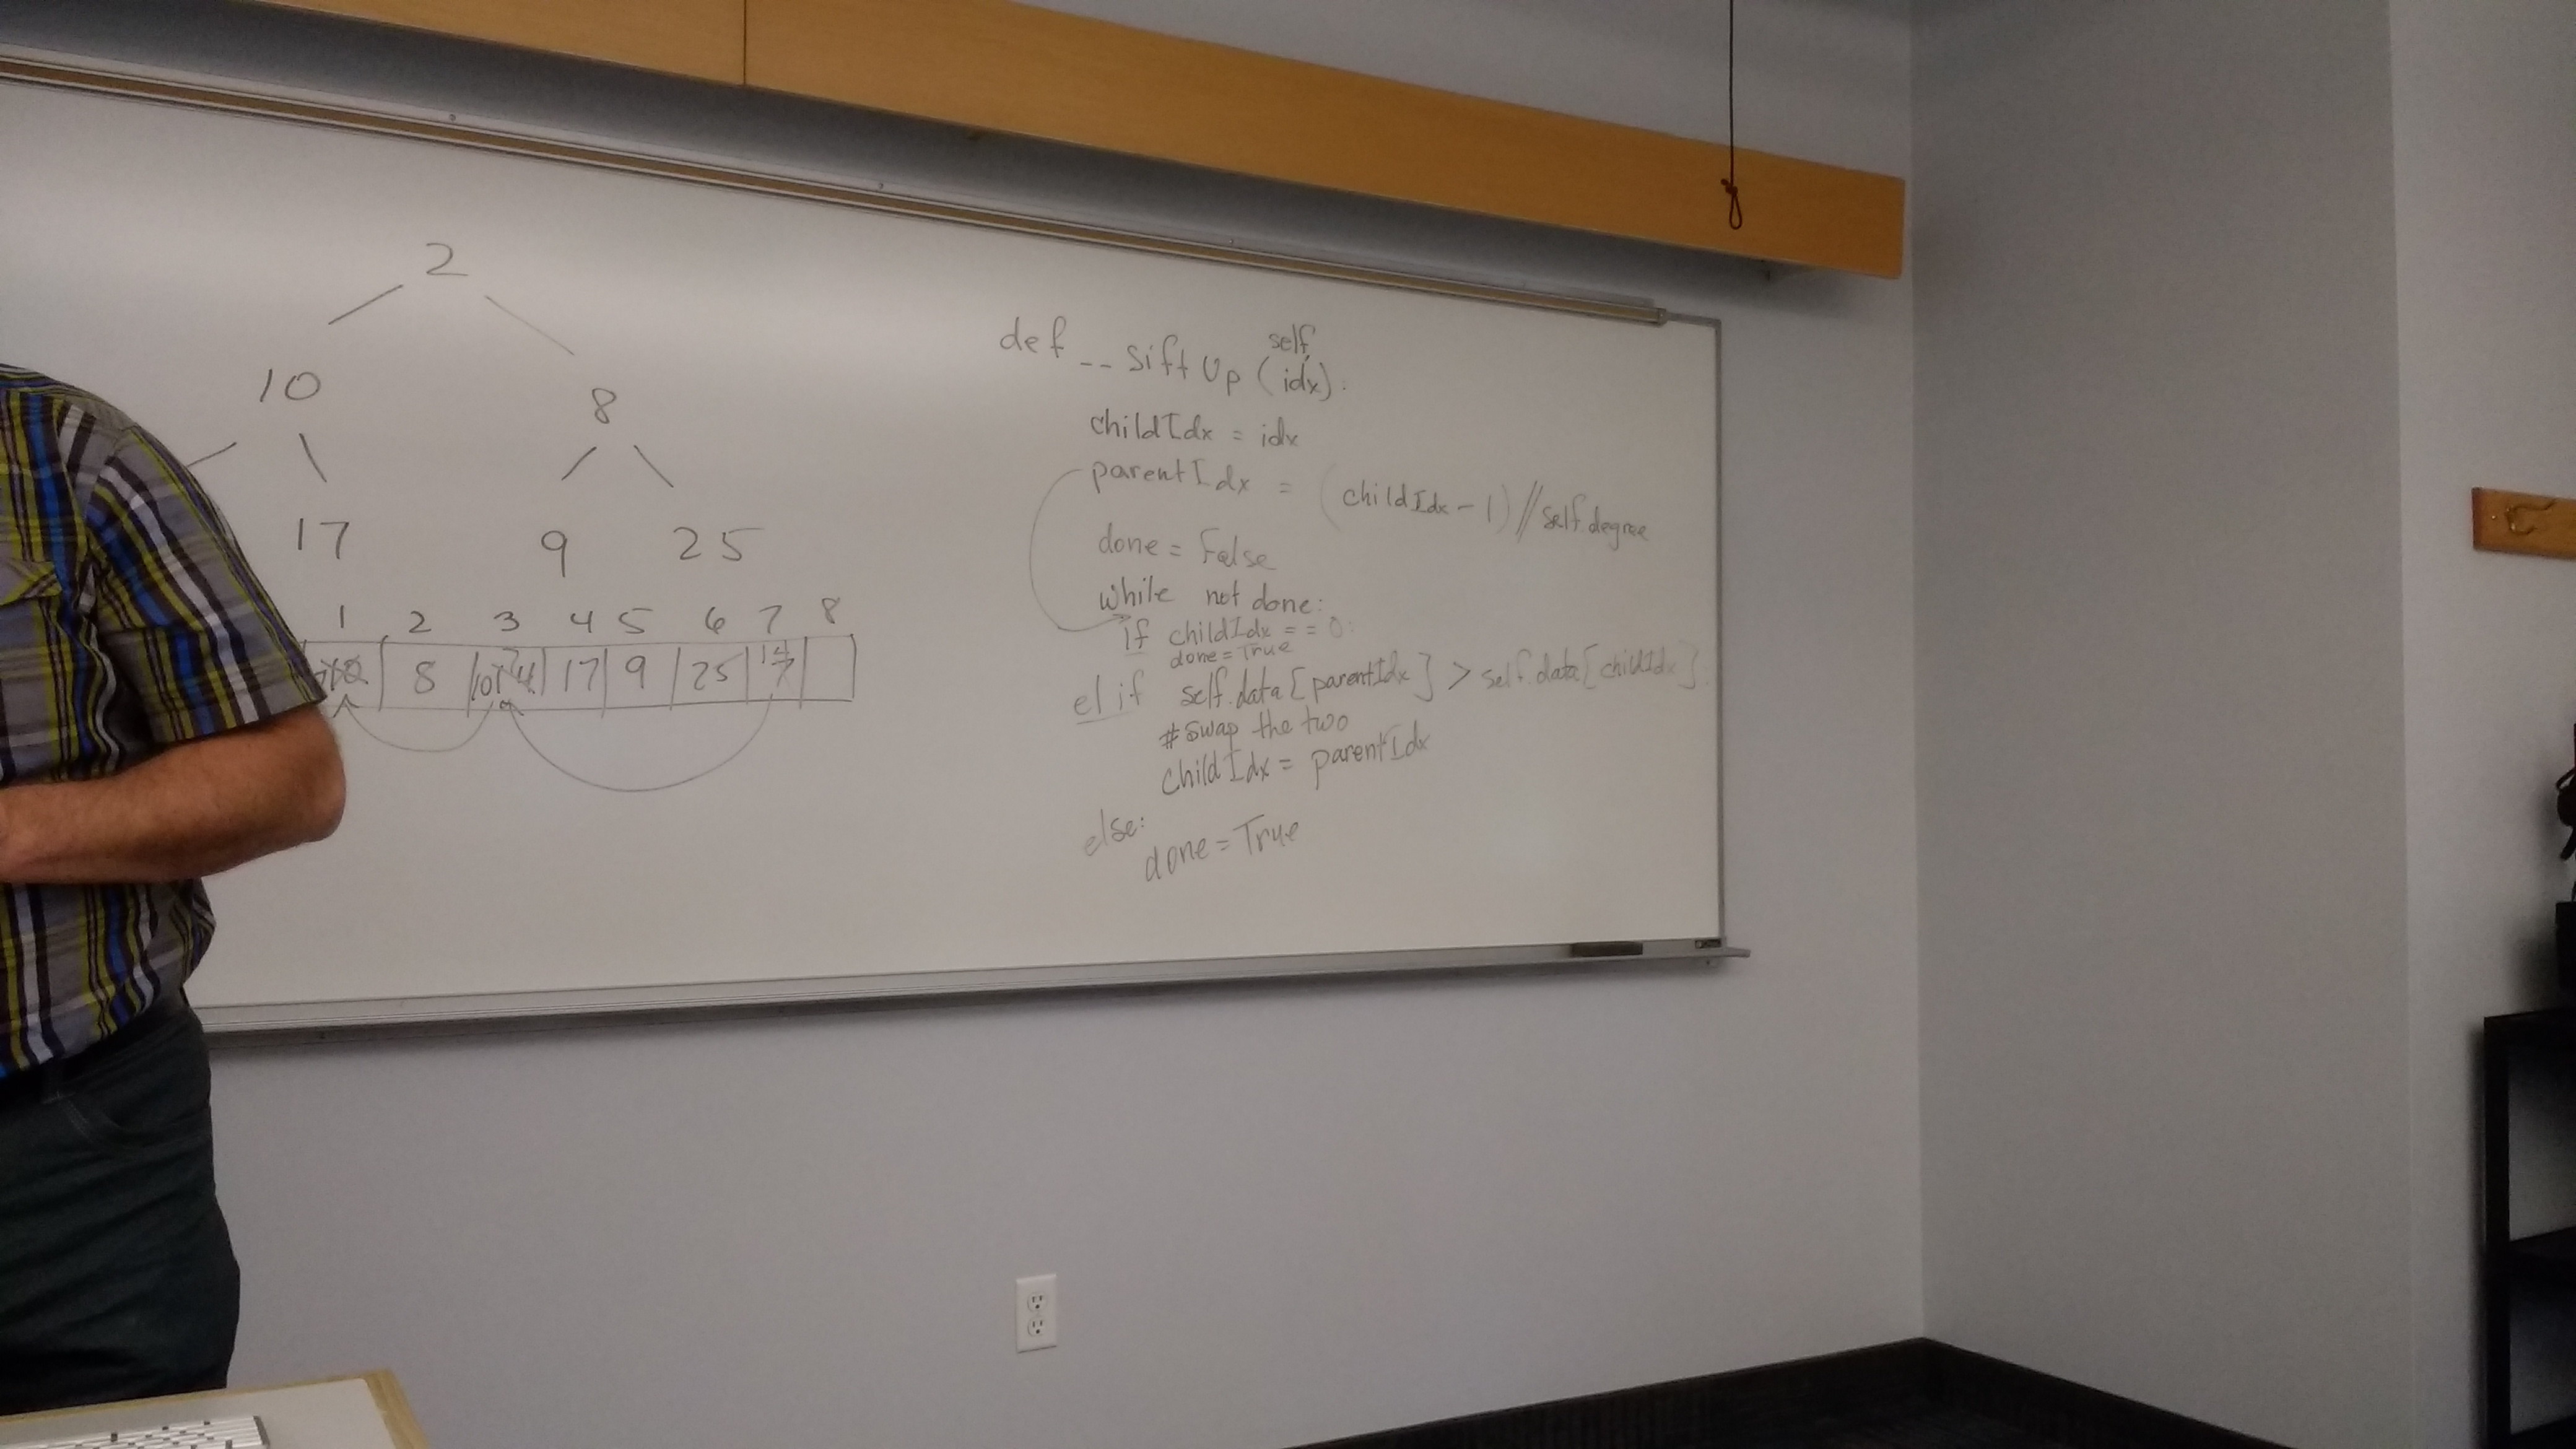 2
10 8
17 9 25
1 2 3 4 5 6 7 8
8 17 9 25 7
def __siftUp(self, idx):
childIdx = idx
parentIdx = (childIdx - 1) // self.degree
done = False
while not done:
if childIdx == 0:
done = True
elif self.data[parentIdx] > self.data[childIdx]:
# Swap the two
childIdx = parentIdx
else:
done = True